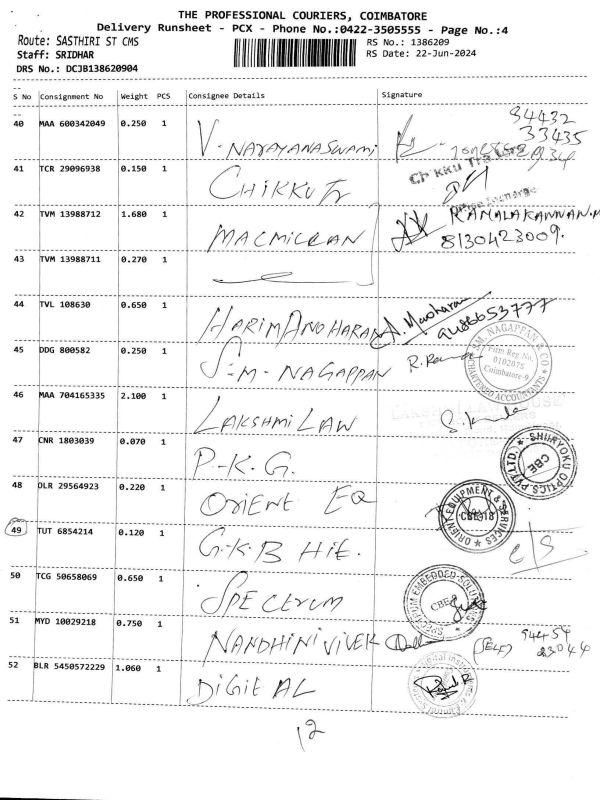 THE PROFESSIONAL COURIERS, COIMBATORE
Delivery Runsheet - PCX - Phone No.:0422-3505555 - Page No.:4
Route: SASTHIRI ST CMS
RS No.: 1386209
Staff: SRIDHAR
RS Date: 22-Jun-2024
DRS No.: DCJB138620904
S No Consignment No Weight PCS Consignee Details Signature
40 MAA 600342049 0.250 1 V. NARAYANASWAMI
94432
33435
41 TCR 29096938 0.150 1 CHIKKU Tr
Chikku Traders
42 TVM 13988712 1.680 1 MACMILLAN
KAMALAKANNAN.M
8130423009.
43 TVM 13988711 0.270 1
44 TVL 108630 0.650 1 HARIMANOHARAN A. Manoharan
9486653777
45 DDG 800582 0.250 1 S.M. NAGAPPAN
S.M. NAGAPPAN & CO
Firm Reg No.
010207S
Coimbatore-9
CHARTERED ACCOUNTANTS
46 MAA 704165335 2.100 1 LAKSHMI LAW
LAKSHMI LAW HOUSE
47 CNR 1803039 0.070 1 P.K.G.
SHURYOKU OPTICS PVT.LTD.
CBE
48 DLR 29564923 0.220 1 ORIENT EQ
ORIENT EQUIPMENT & SERVICES
CBE-18
49 TUT 6854214 0.120 1 G.K.B HiE. C/S
50 TCG 50658069 0.650 1 SPECTRUM
SPECTRUM EMBEDDED SOLUTIONS
CBE
51 MYD 10029218 0.750 1 NANDHINI VIVEK (SELF) 94454
23044
52 BLR 5450572229 1.060 1 DIGITAL
12